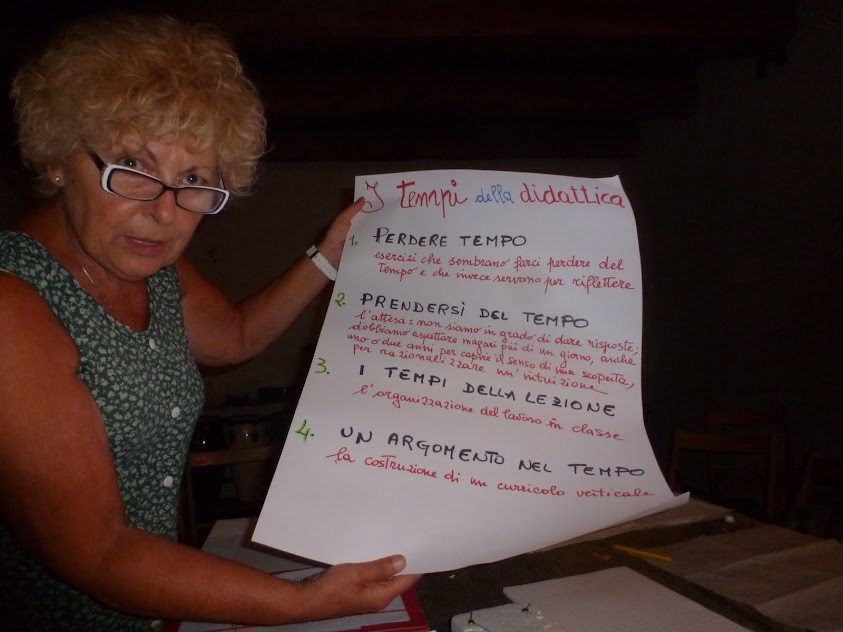 I tempi della didattica
1. PERDERE TEMPO
esercizi che sembrano farci perdere del
tempo e che invece servono per riflettere
2. PRENDERSI DEL TEMPO
l'attesa: non siamo in grado di dare risposte;
dobbiamo aspettare magari più di un giorno, anche
uno o due anni per capire il senso di una scoperta,
per razionalizzare un'intuizione
3. I TEMPI DELLA LEZIONE
l'organizzazione del lavoro in classe
4. UN ARGOMENTO NEL TEMPO
la costruzione di un curricolo verticale